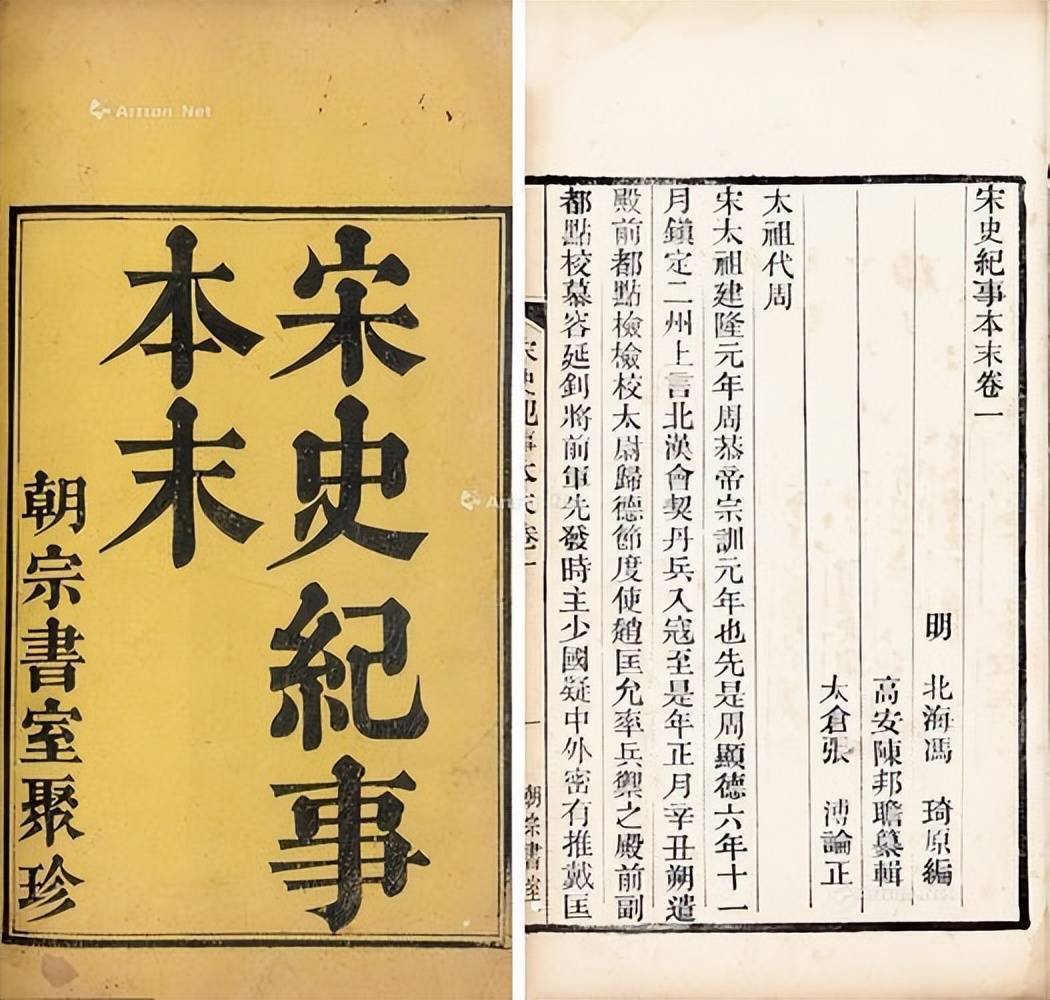 Artron.Net
宋史紀事
本末
朝宗書室聚珍
宋史紀事本末卷一
明 北海馮 琦原編
高安陳邦瞻纂輯
太倉張 溥論正
太祖代周
宋太祖建隆元年周恭帝宗訓元年也先是周顯德六年十一
月鎮定二州上言北漢會契丹兵入寇至是年正月辛丑朔遣
殿前都點檢檢校太尉歸德節度使趙匡允率兵禦之殿前副
都點校慕容延釗將前軍先發時主少國疑中外密有推戴匡
宋史紀事本末卷一
一
朝宗書室